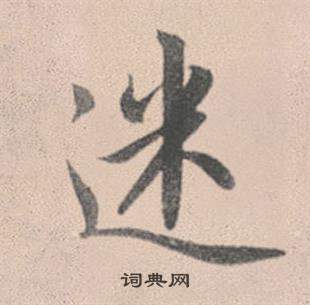 迷
词典网